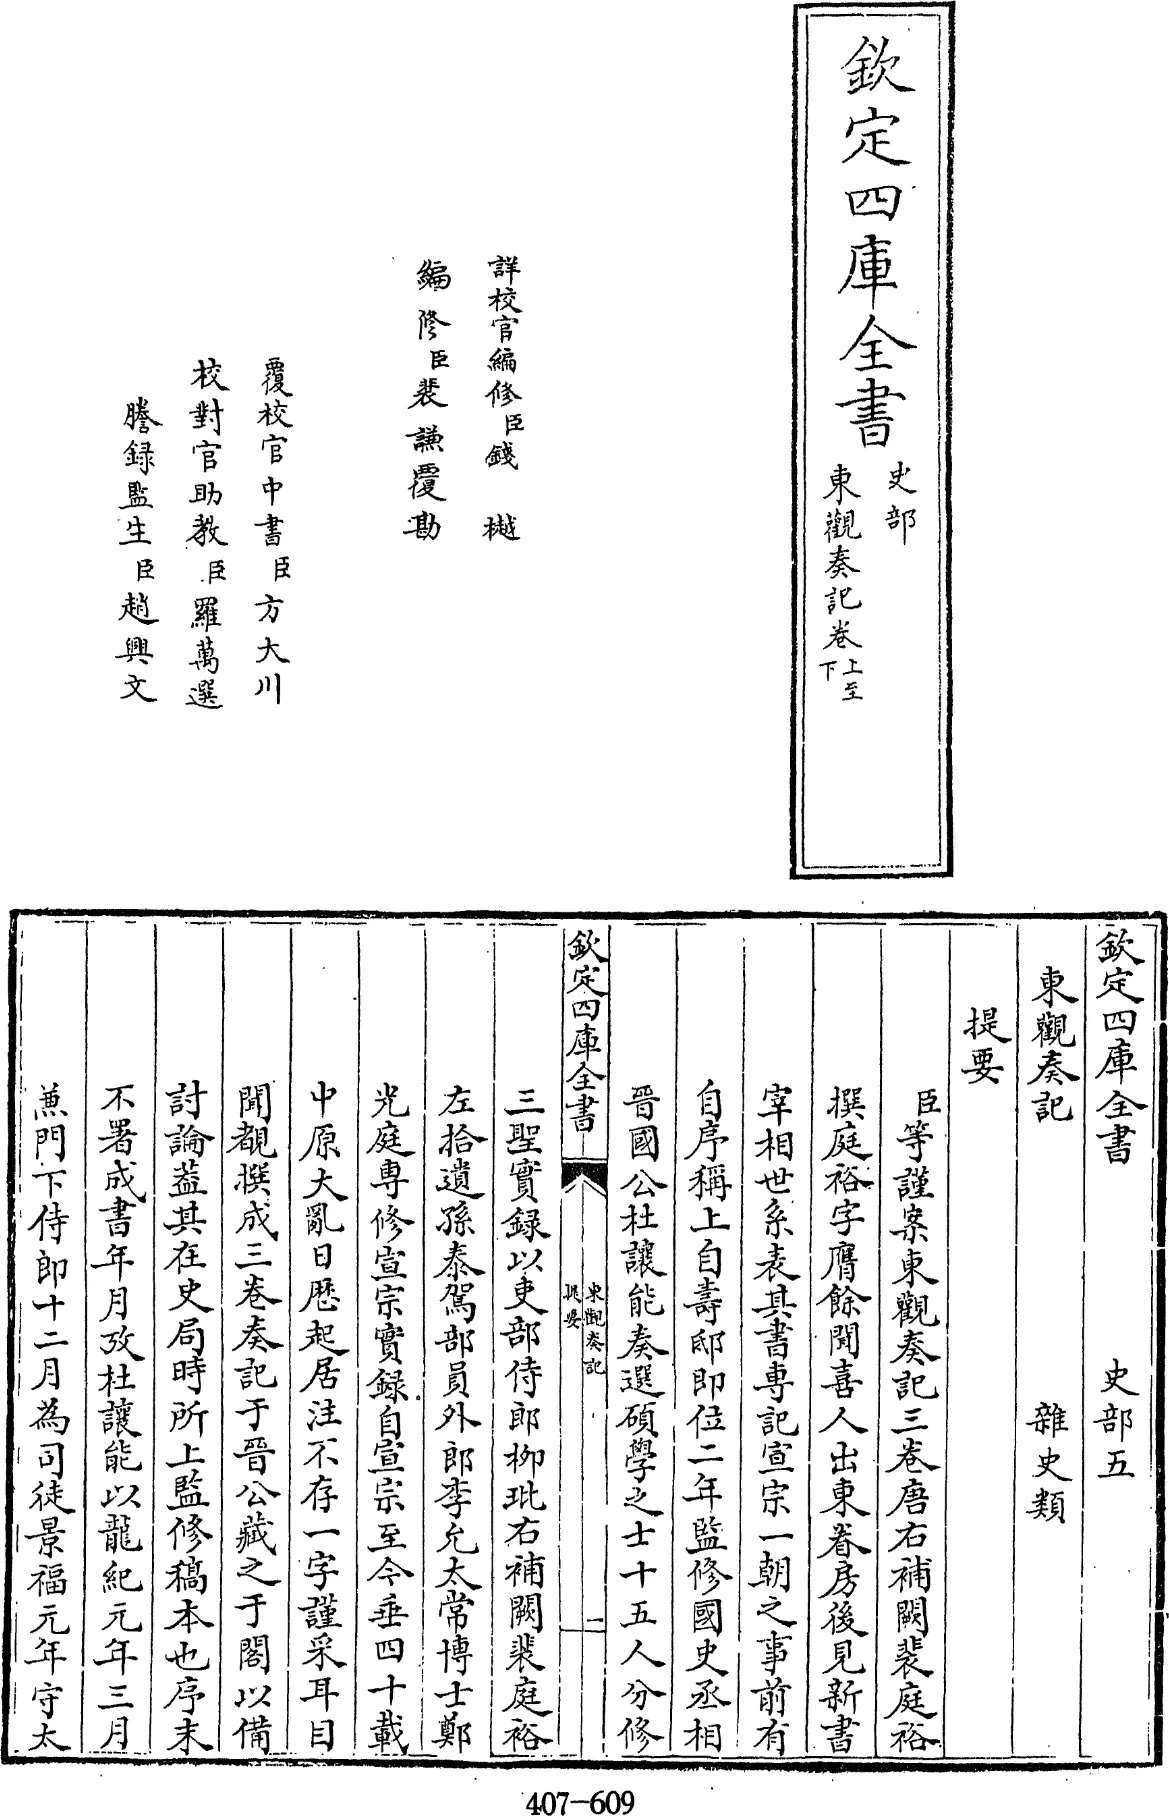 欽定四庫全書
史部
東觀奏記卷上至下
詳校官編修臣錢樾
編修臣裴謙覆勘
覆校官中書臣方大川
校對官助教臣羅萬選
謄録監生臣趙興文
欽定四庫全書 史部五
東觀奏記 雜史類
提要
臣等謹案東觀奏記三卷唐右補闕裴庭裕
撰庭裕字膺餘聞喜人出東眷房後見新書
宰相世系表其書專記宣宗一朝之事前有
自序稱上自壽邸即位二年監修國史丞相
晉國公杜讓能奏選碩學之士十五人分修
欽定四庫全書
東觀奏記
提要
一
三聖實録以吏部侍郎柳玭右補闕裴庭裕
左拾遺孫泰駕部員外郎李允太常博士鄭
光庭専修宣宗實録自宣宗至今垂四十載
中原大亂日厯起居注不存一字謹采耳目
聞覩撰成三卷奏記于晉公藏之于閣以備
討論葢其在史局時所上監修稿本也序末
不署成書年月攷杜讓能以龍紀元年三月
兼門下侍郎十二月為司徒景福元年守太
407-609